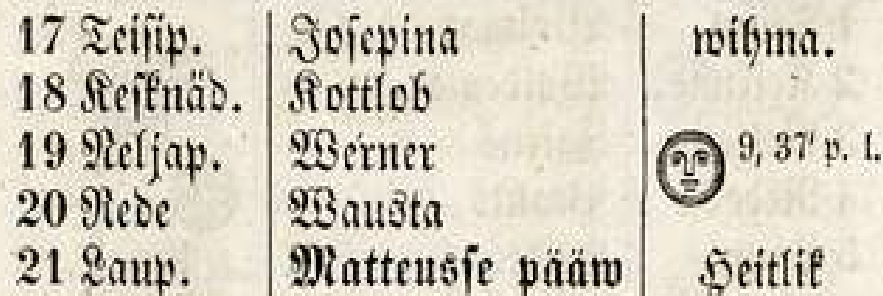 17 Teisip. Josepina wihma.
18 Kesknäd. Kottlob
19 Neljap. Werner 9, 37' p. l.
20 Rede Wausta
21 Laup. Matteusse pääw Heitlik